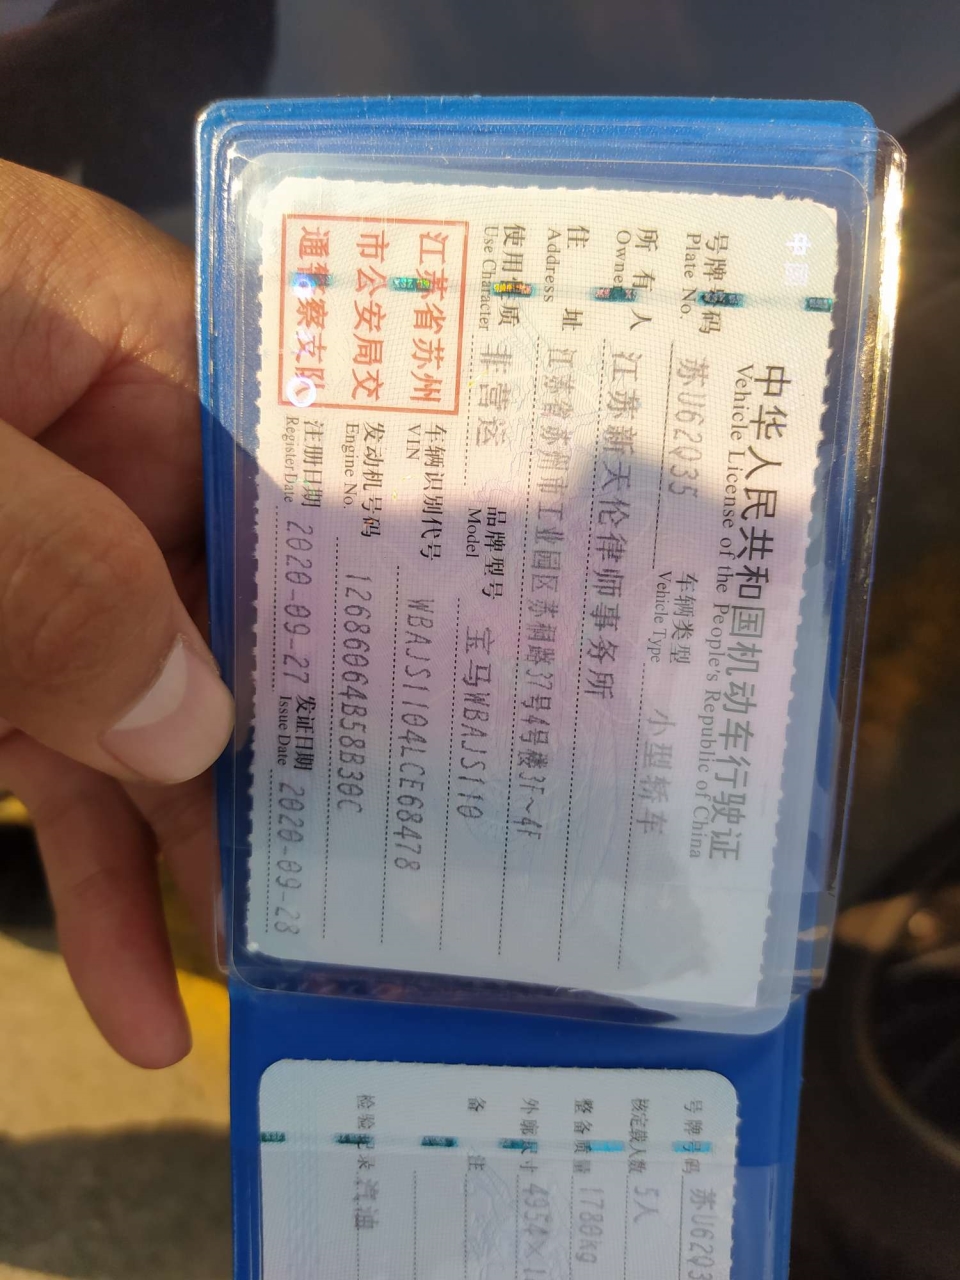 中华人民共和国机动车行驶证
Vehicle License of the People's Republic of China
号牌号码 苏U62Q35 车辆类型 小型轿车
Plate No. Vehicle Type
所有人 江苏新天伦律师事务所
Owner
住址 江苏省苏州市工业园区苏桐路37号4号楼3F~4F
Address
使用性质 非营运 品牌型号 宝马WBAJS110
Use Character Model
江苏省苏州
市公安局交
通警察支队
车辆识别代号 WBAJS1104LCE68478
VIN
发动机号码 12686064B58B30C
Engine No.
注册日期 2020-09-27 发证日期 2020-09-28
Register Date Issue Date
号牌号码 苏U62Q3
核定载人数 5人
整备质量 1780kg
外廓尺寸
备注
检验记录 汽油